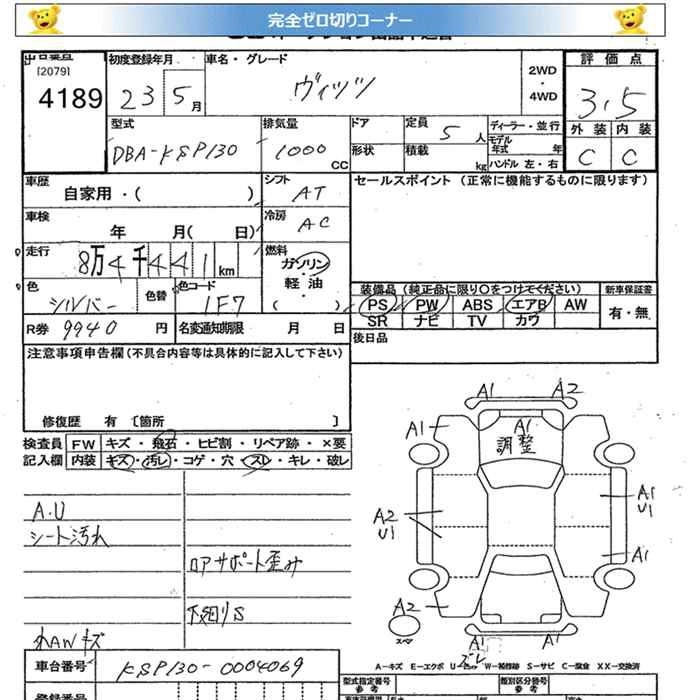 完全ゼロ切りコーナー
[2079]
4189
初度登録年月
23 5 月
車名・グレード
ヴィッツ
2WD
・
4WD
評価点
3.5
外装 内装
C C
型式
DBA-KSP130
排気量
1000 CC
ドア
形状
定員 5 人
積載 kg
ディーラー・並行
モデル年式 年
ハンドル 左・右
車歴
自家用・( )
シフト
AT
セールスポイント (正常に機能するものに限ります)
車検
年 月( 日)
冷房
AC
走行
8万4千441km
燃料
ガソリン
・
軽油
( )
色
シルバー
色替
色コード
1F7
装備品 (純正品に限り〇をつけてください)
新車保証書
PS PW ABS エアB AW
SR ナビ TV カワ
有・無
R券 9940 円
名変通知期限 月 日
後日品
注意事項申告欄(不具合内容等は具体的に記入して下さい)
修復歴 有 〔箇所 〕
検査員
記入欄
FW キズ・飛石・ヒビ割・リペア跡・×要
内装 キズ・汚レ・コゲ・穴・スレ・キレ・破レ
A.U
シート汚れ
ロアサポート歪み
下廻りS
A1 A2
A1
A1
調整
A2
U1
A1
U1
A1
A2
スペア
A1
ズレ
A1
A-キズ E-エクボ U-凹み W-補修跡 S-サビ C-腐食 XX-交換済
車台番号
KSP130-0004069
型式指定番号
参考
類別区分番号
参考
登録番号